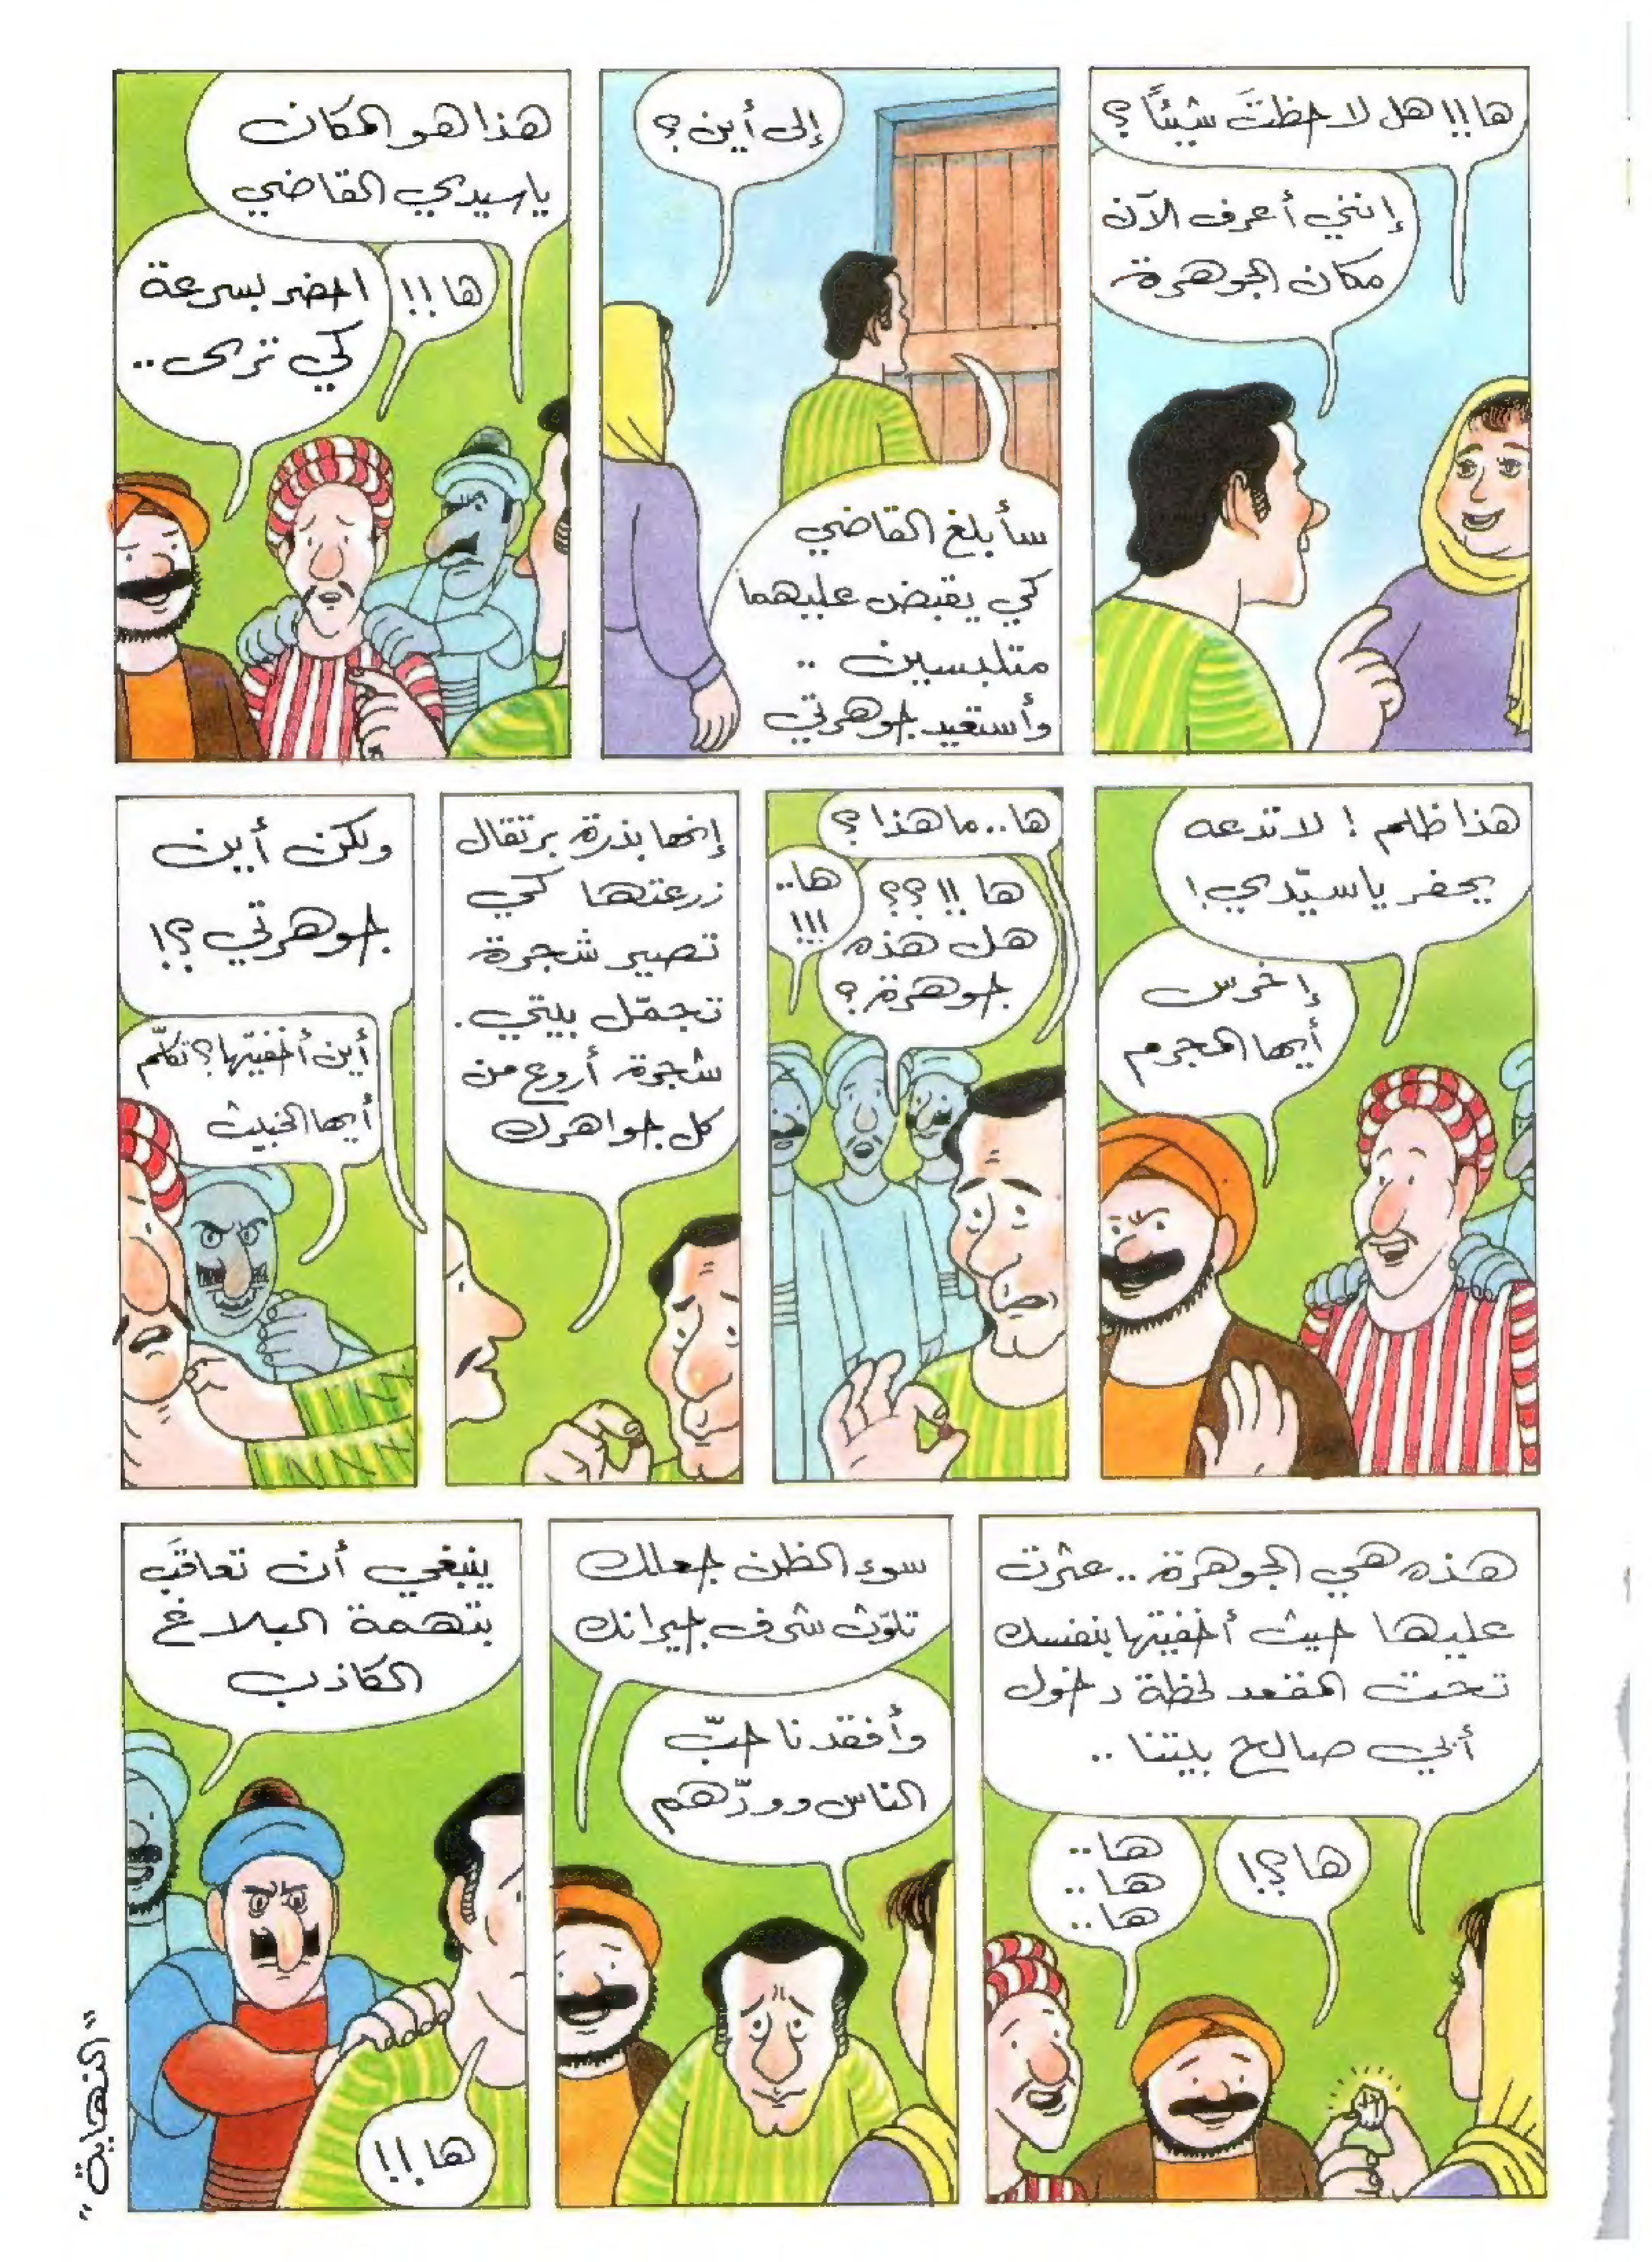 ها!! هل لاحظتَ شيئًا؟
إنني أعرف الآن
مكان الجوهرة
إلى أين؟
سأبلغ القاضي
كي يقبض عليهما
متلبسين ..
وأستعيد جوهرتي
هذا هو المكان
ياسيدي القاضي
ها!!
احفر بسرعة
كي نرى..
هذا ظلم! لا تدعه
يحفر ياسيّدي!
إخرس
أيها المجرم
ها.. ما هذا؟
ها!!؟؟
هل هذه
جوهرة؟
ها..
!!!
إنها بذرة برتقال
زرعتها كي
تصير شجرة
تجمّل بيتي.
شجرة أروع من
كل جواهرك
ولكن أين
جوهرتي؟!
أين أخفيتها؟ تكلّم
أيها الخبيث
هذه هي الجوهرة.. عثرت
عليها حيث أخفيتها بنفسك
تحت المقعد لحظة دخول
أبي صالح بيتنا ..
ها؟!
ها..
ها..
ها..
سوء الظن جعلك
تلوّث شرف جيرانك
وأفقدنا حبّ
الناس وودّهم
ينبغي أن تعاقَب
بتهمة البلاغ
الكاذب
ها!!
"النهاية"